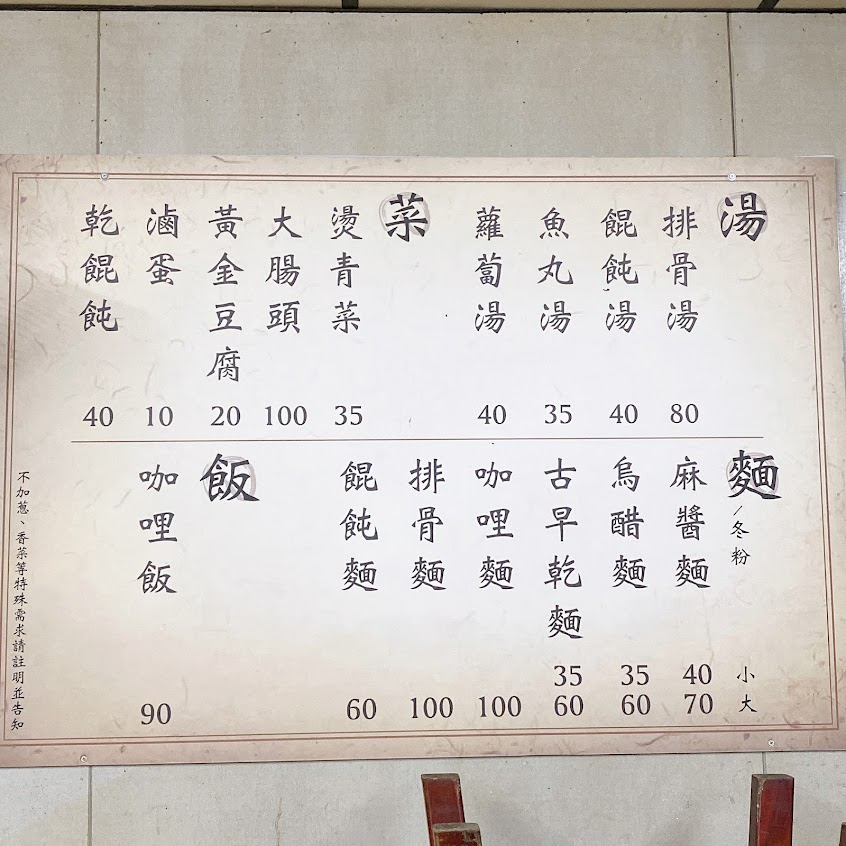 湯
排骨湯 80
餛飩湯 40
魚丸湯 35
蘿蔔湯 40
菜
燙青菜 35
大腸頭 100
黃金豆腐 20
滷蛋 10
乾餛飩 40
麵/冬粉 小 大
麻醬麵 40 70
烏醋麵 35 60
古早乾麵 35 60
咖哩麵 100
排骨麵 100
餛飩麵 60
飯
咖哩飯 90
不加蔥、香菜等特殊需求請註明並告知